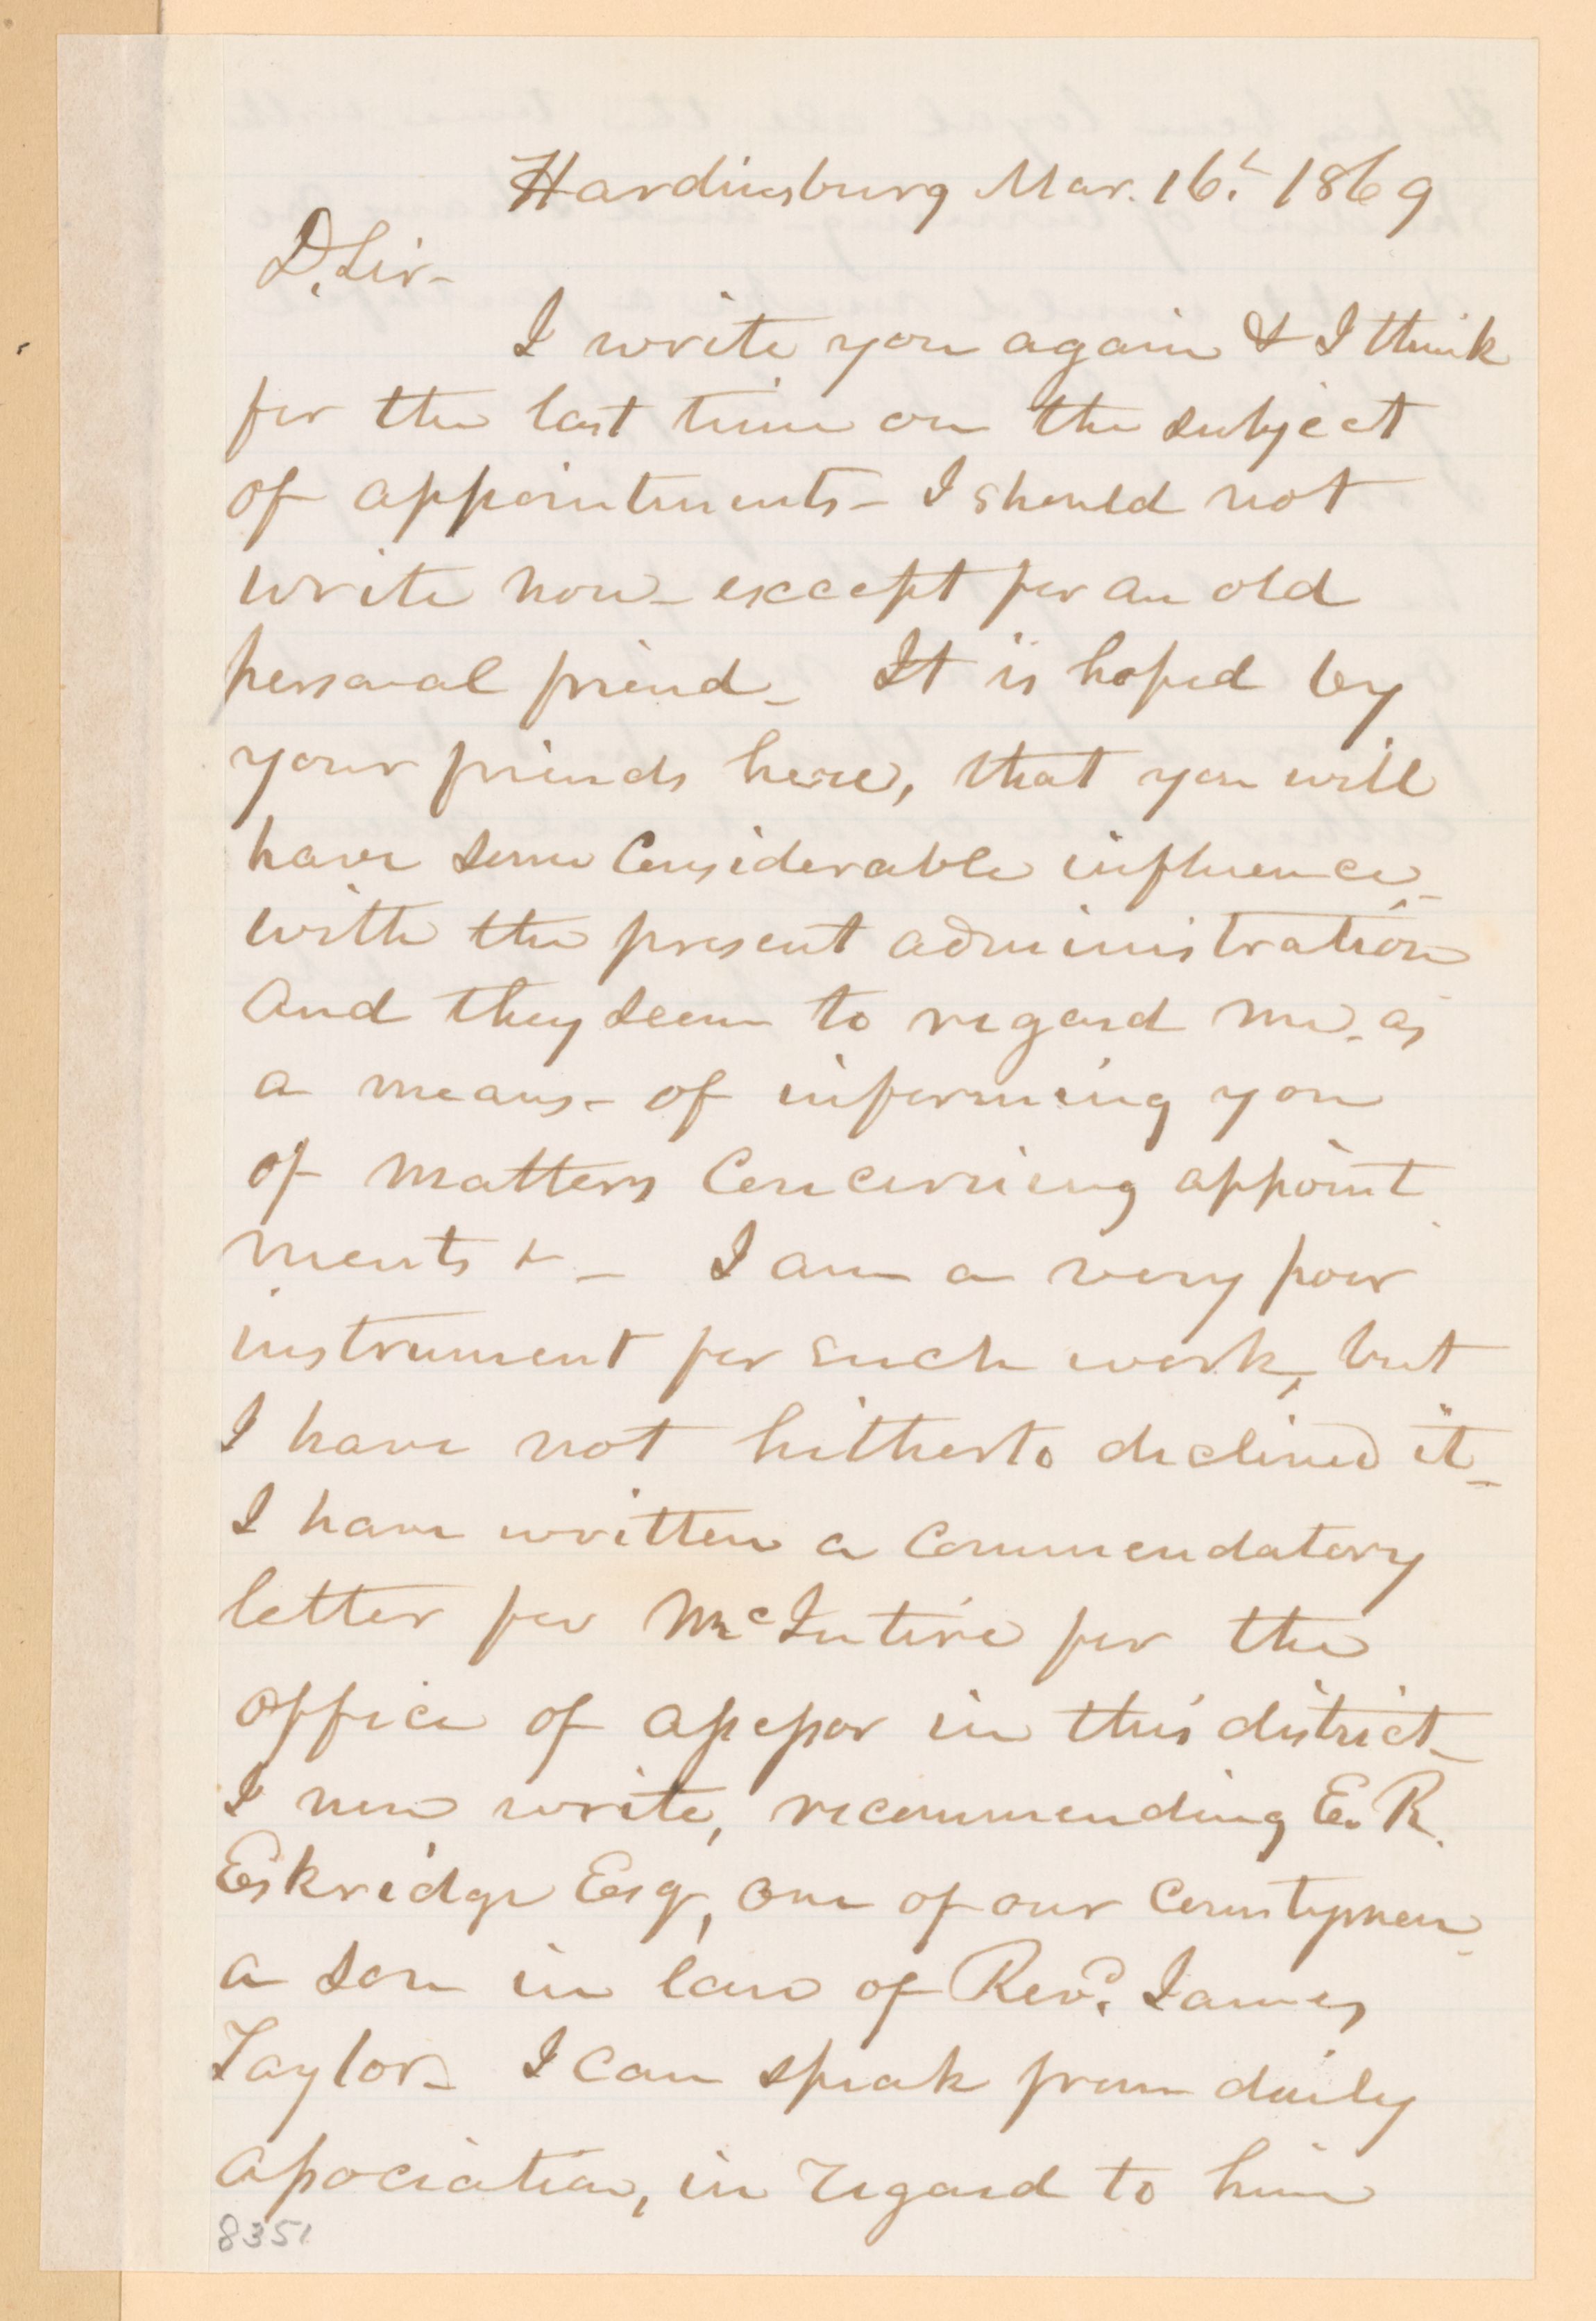 Hardinsburg Mar. 16th 1869
D. Sir-
I write you again & I think
for the last time on the subject
of appointments - I should not
write now - except for an old
personal friend - It is hoped by
your friends here, that you will
have some Considerable influence -
with the present administration
And they seem to regard me - as
a means - of informing you
of matters Concerning appoint
ments & - I am a very poor
instrument for such work, but
I have not hitherto declined it -
I have written a Commendatory
letter for McIntire for the
office of assessor in this district -
I now write, recommending E. R.
Eskridge Esq, one of our Countymen -
a son in law of Revd. James
Taylor - I can speak from daily
association, in regard to him
8351